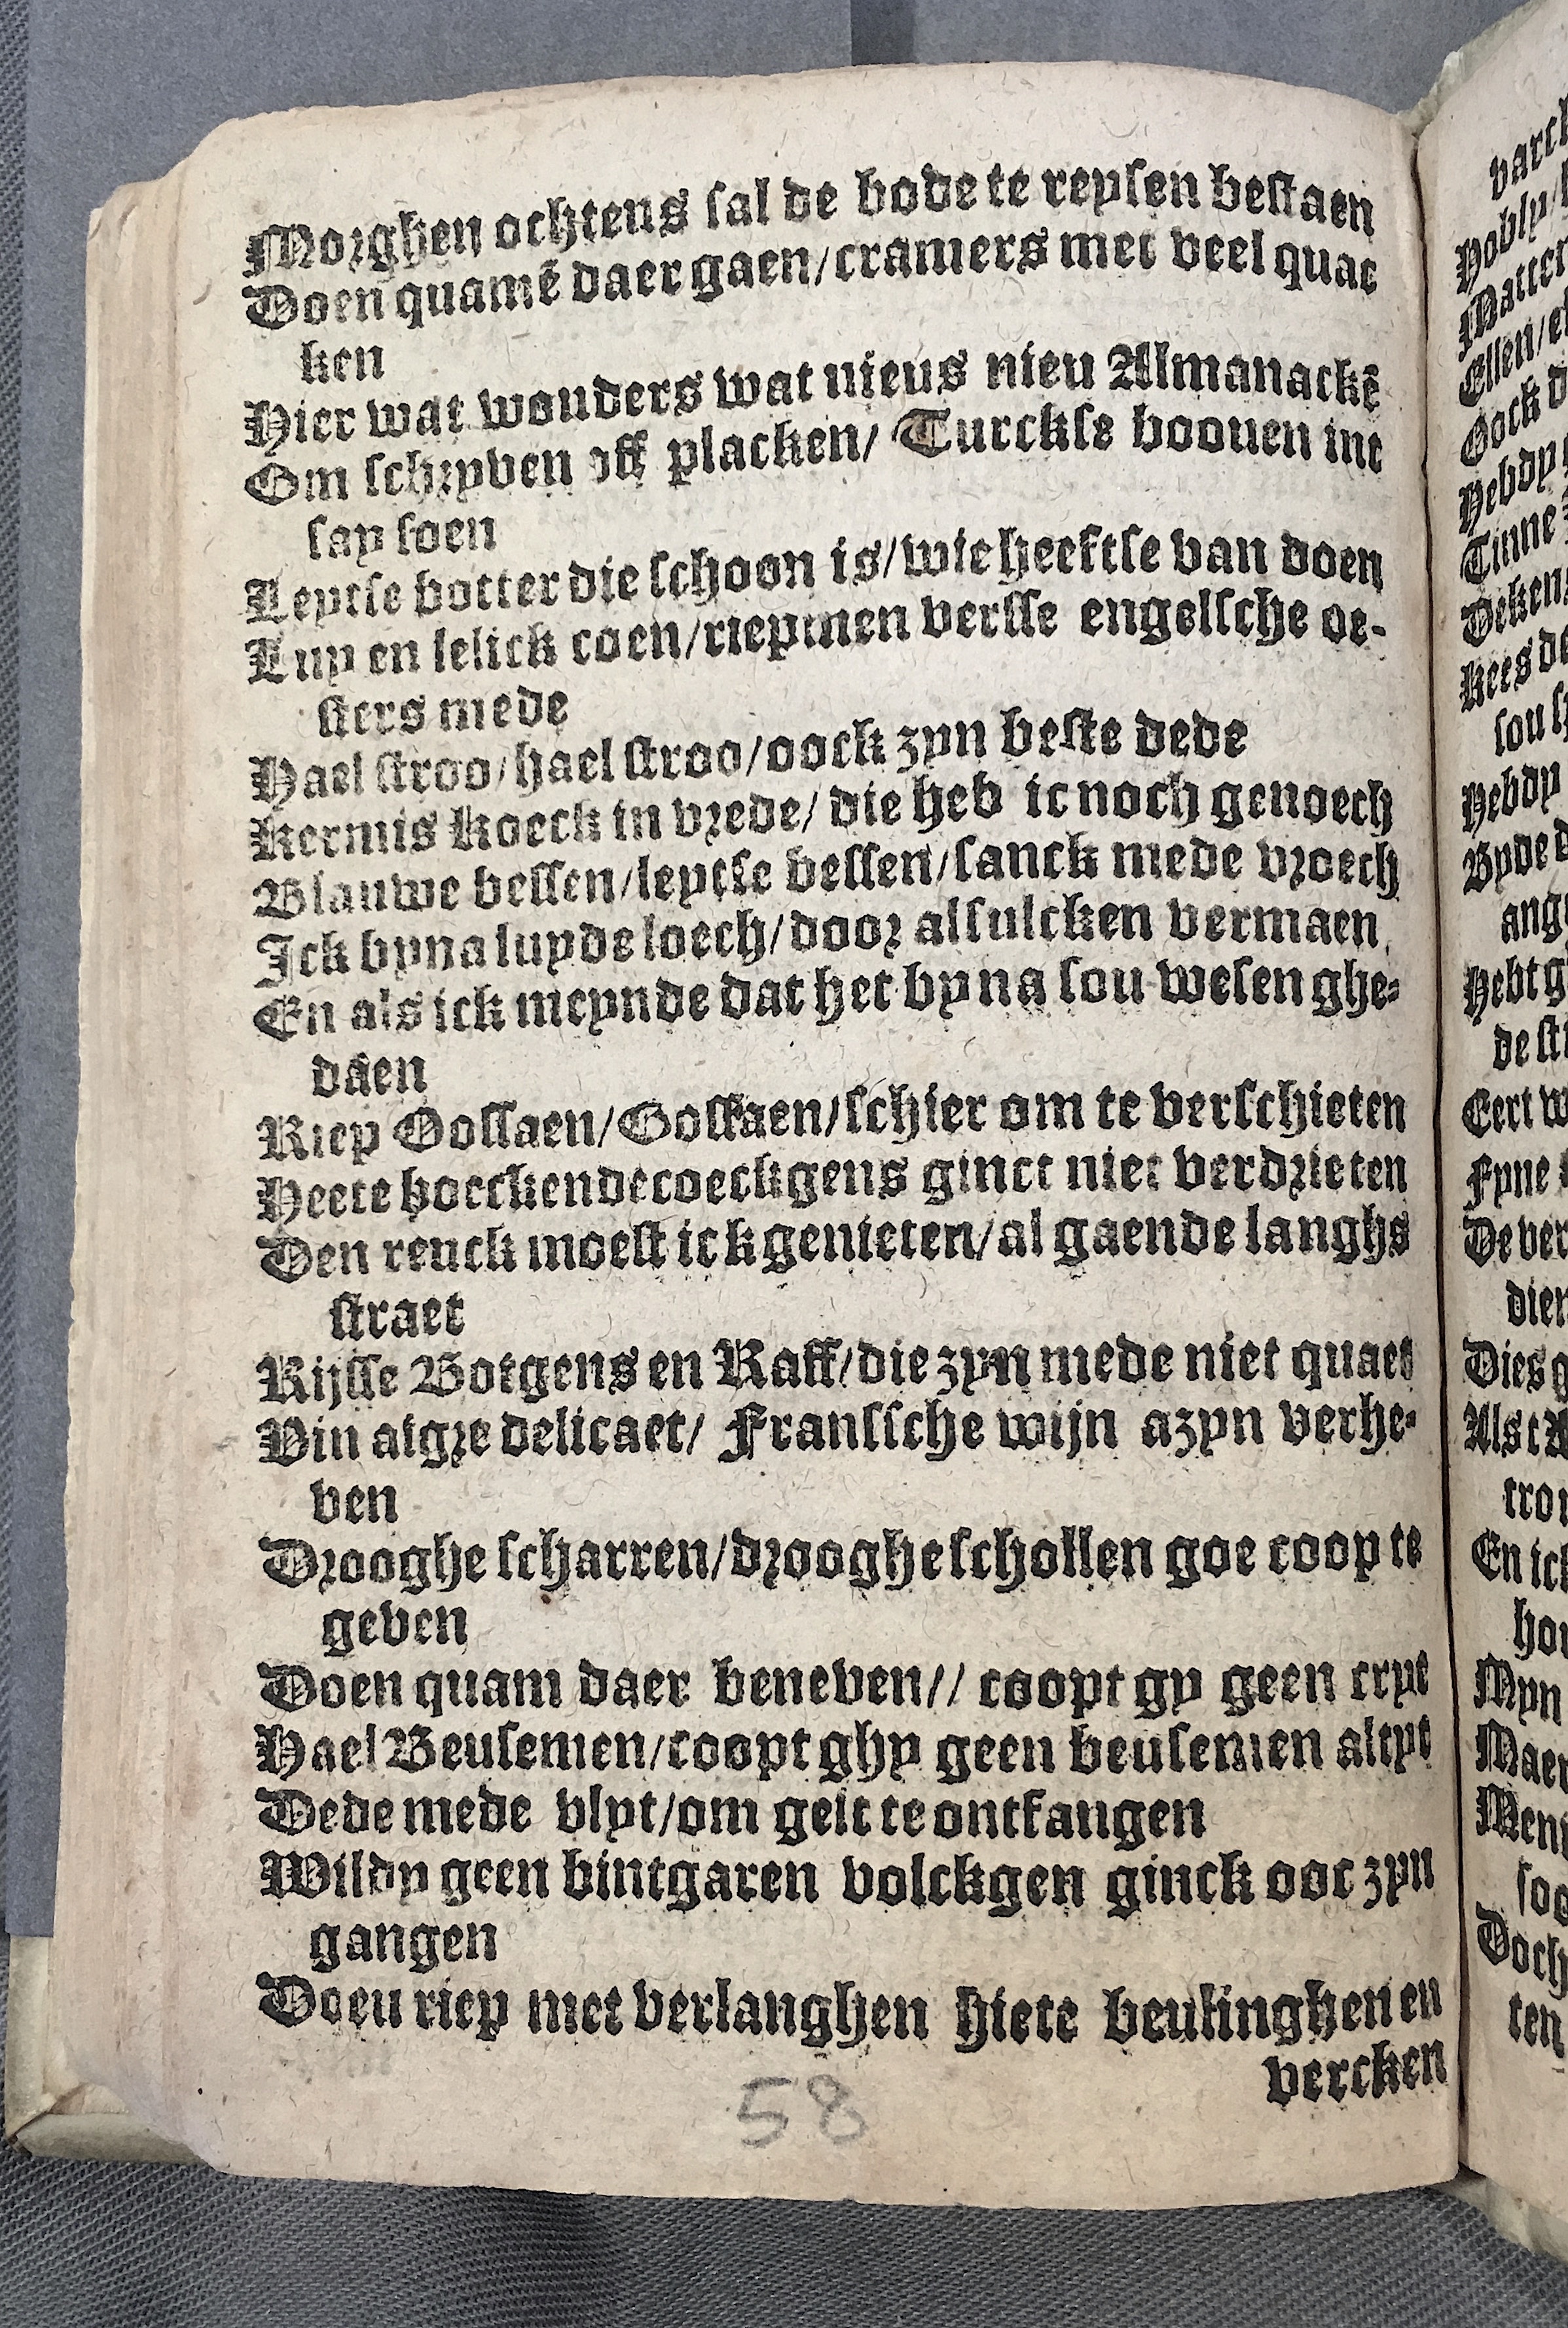 Morghen ochtens sal de bode te reysen bestaen
Doen quamē daer gaen/cramers met veel quac
ken
Hier wat wouders wat nieus nieu Almanackē
Om schryven off placken/ Turckse boouen int
say soen
Leytse botter die schoon is/wie heeftse van doen
Luy en lelick coen/riepmen versse engelsche oe-
sters mede
Hael stroo/hael stroo/oock zyn beste dede
Kermis Koeck in vrede/ die heb ic noch genoech
Blauwe bessen/leytse bessen/sanck mede vroech
Ick byna luyde loech/door alsulcken vermaen
En als ick meynde dat het byna sou wesen ghe-
daen
Riep Oossaen/Gossaen/schier om te verschieten
Heete boeckende coeckgens ginct niet verdrieten
Den reuck moest ick genieten/al gaende langhs
straet
Rijsse Botgens en Raff/die zyn mede niet quaet
Vin aigre delicaet/ Franssche wijn azyn verhe-
ven
Drooghe scharren/drooghe schollen goe coop te
geven
Doen quam daer beneven// coopt gy geen cryt
Hael Beusemen/coopt ghy geen beusemen altyt
Dede mede vlyt/om gelt te ontfangen
Wildy geen bintgaren volckgen ginck ooc zyn
gangen
Doeu riep met verlanghen hiete beulinghen en
vercken
58
varck
Hebdy
Ellen/
Oock d
Hebdy
Tinne
Deken
Kees de
sou
Hebdy
Byde d
ang
Hebt g
de sti
Eert w
Fyne
De ver
dien
Dies g
Als t
tro
En ick
hou
Myn
Maer
Men
soo
Doch
ten